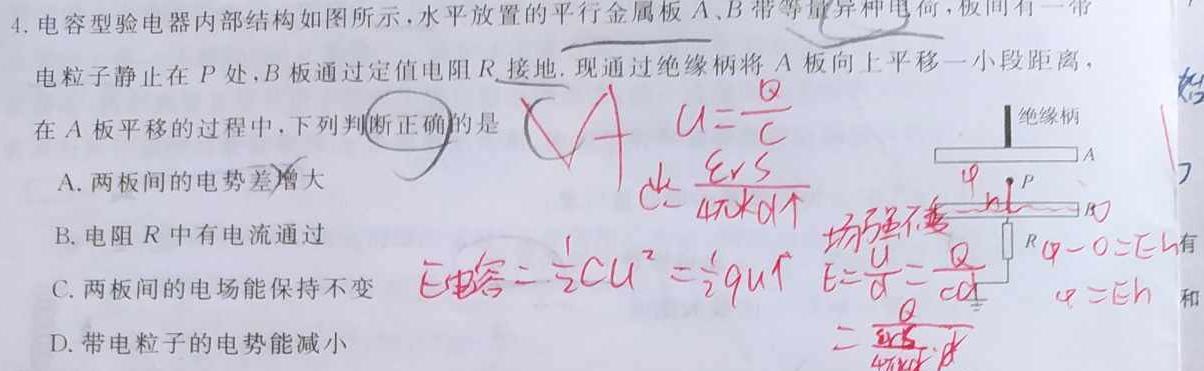 4. 电容型验电器内部结构如图所示,水平放置的平行金属板 A、B 带等量异种电荷,板间有一带
电粒子静止在 P 处,B 板通过定值电阻 R 接地. 现通过绝缘柄将 A 板向上平移一小段距离,
在 A 板平移的过程中,下列判断正确的是
A
U=Q/C
绝缘柄
A
A. 两板间的电势差增大
C↓=εrS/4πkd↑
φ
P
h
B
0
B. 电阻 R 中有电流通过
场强不变
R
φ-0=Eh
有
E电容=½CU²=½qU↑
E=U/d=Q/Cd
C. 两板间的电场能保持不变
φ=Eh
和
D. 带电粒子的电势能减小
=Q/(εrS/4πkd·d)